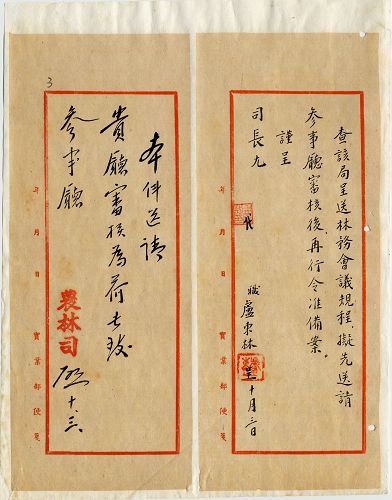 查該局呈送林務會議規程，擬先送請
參事廳審核後，再行令准備案。
謹呈
司長九
職盧東林
十月三日
年 月 日 實業部便箋
本件送請
貴廳審核為荷此致
參事廳
農林司 啟 十、三、
年 月 日 實業部便箋
3